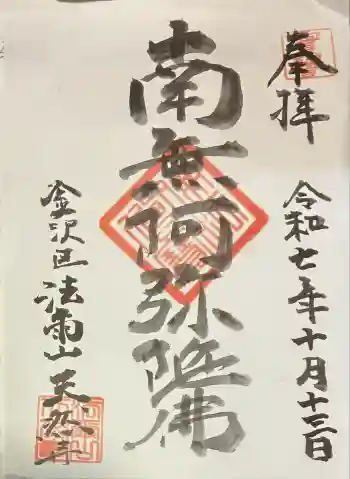 奉拝
令和七年十月十三日
南無阿弥陀佛
金沢区法爾山天然寺